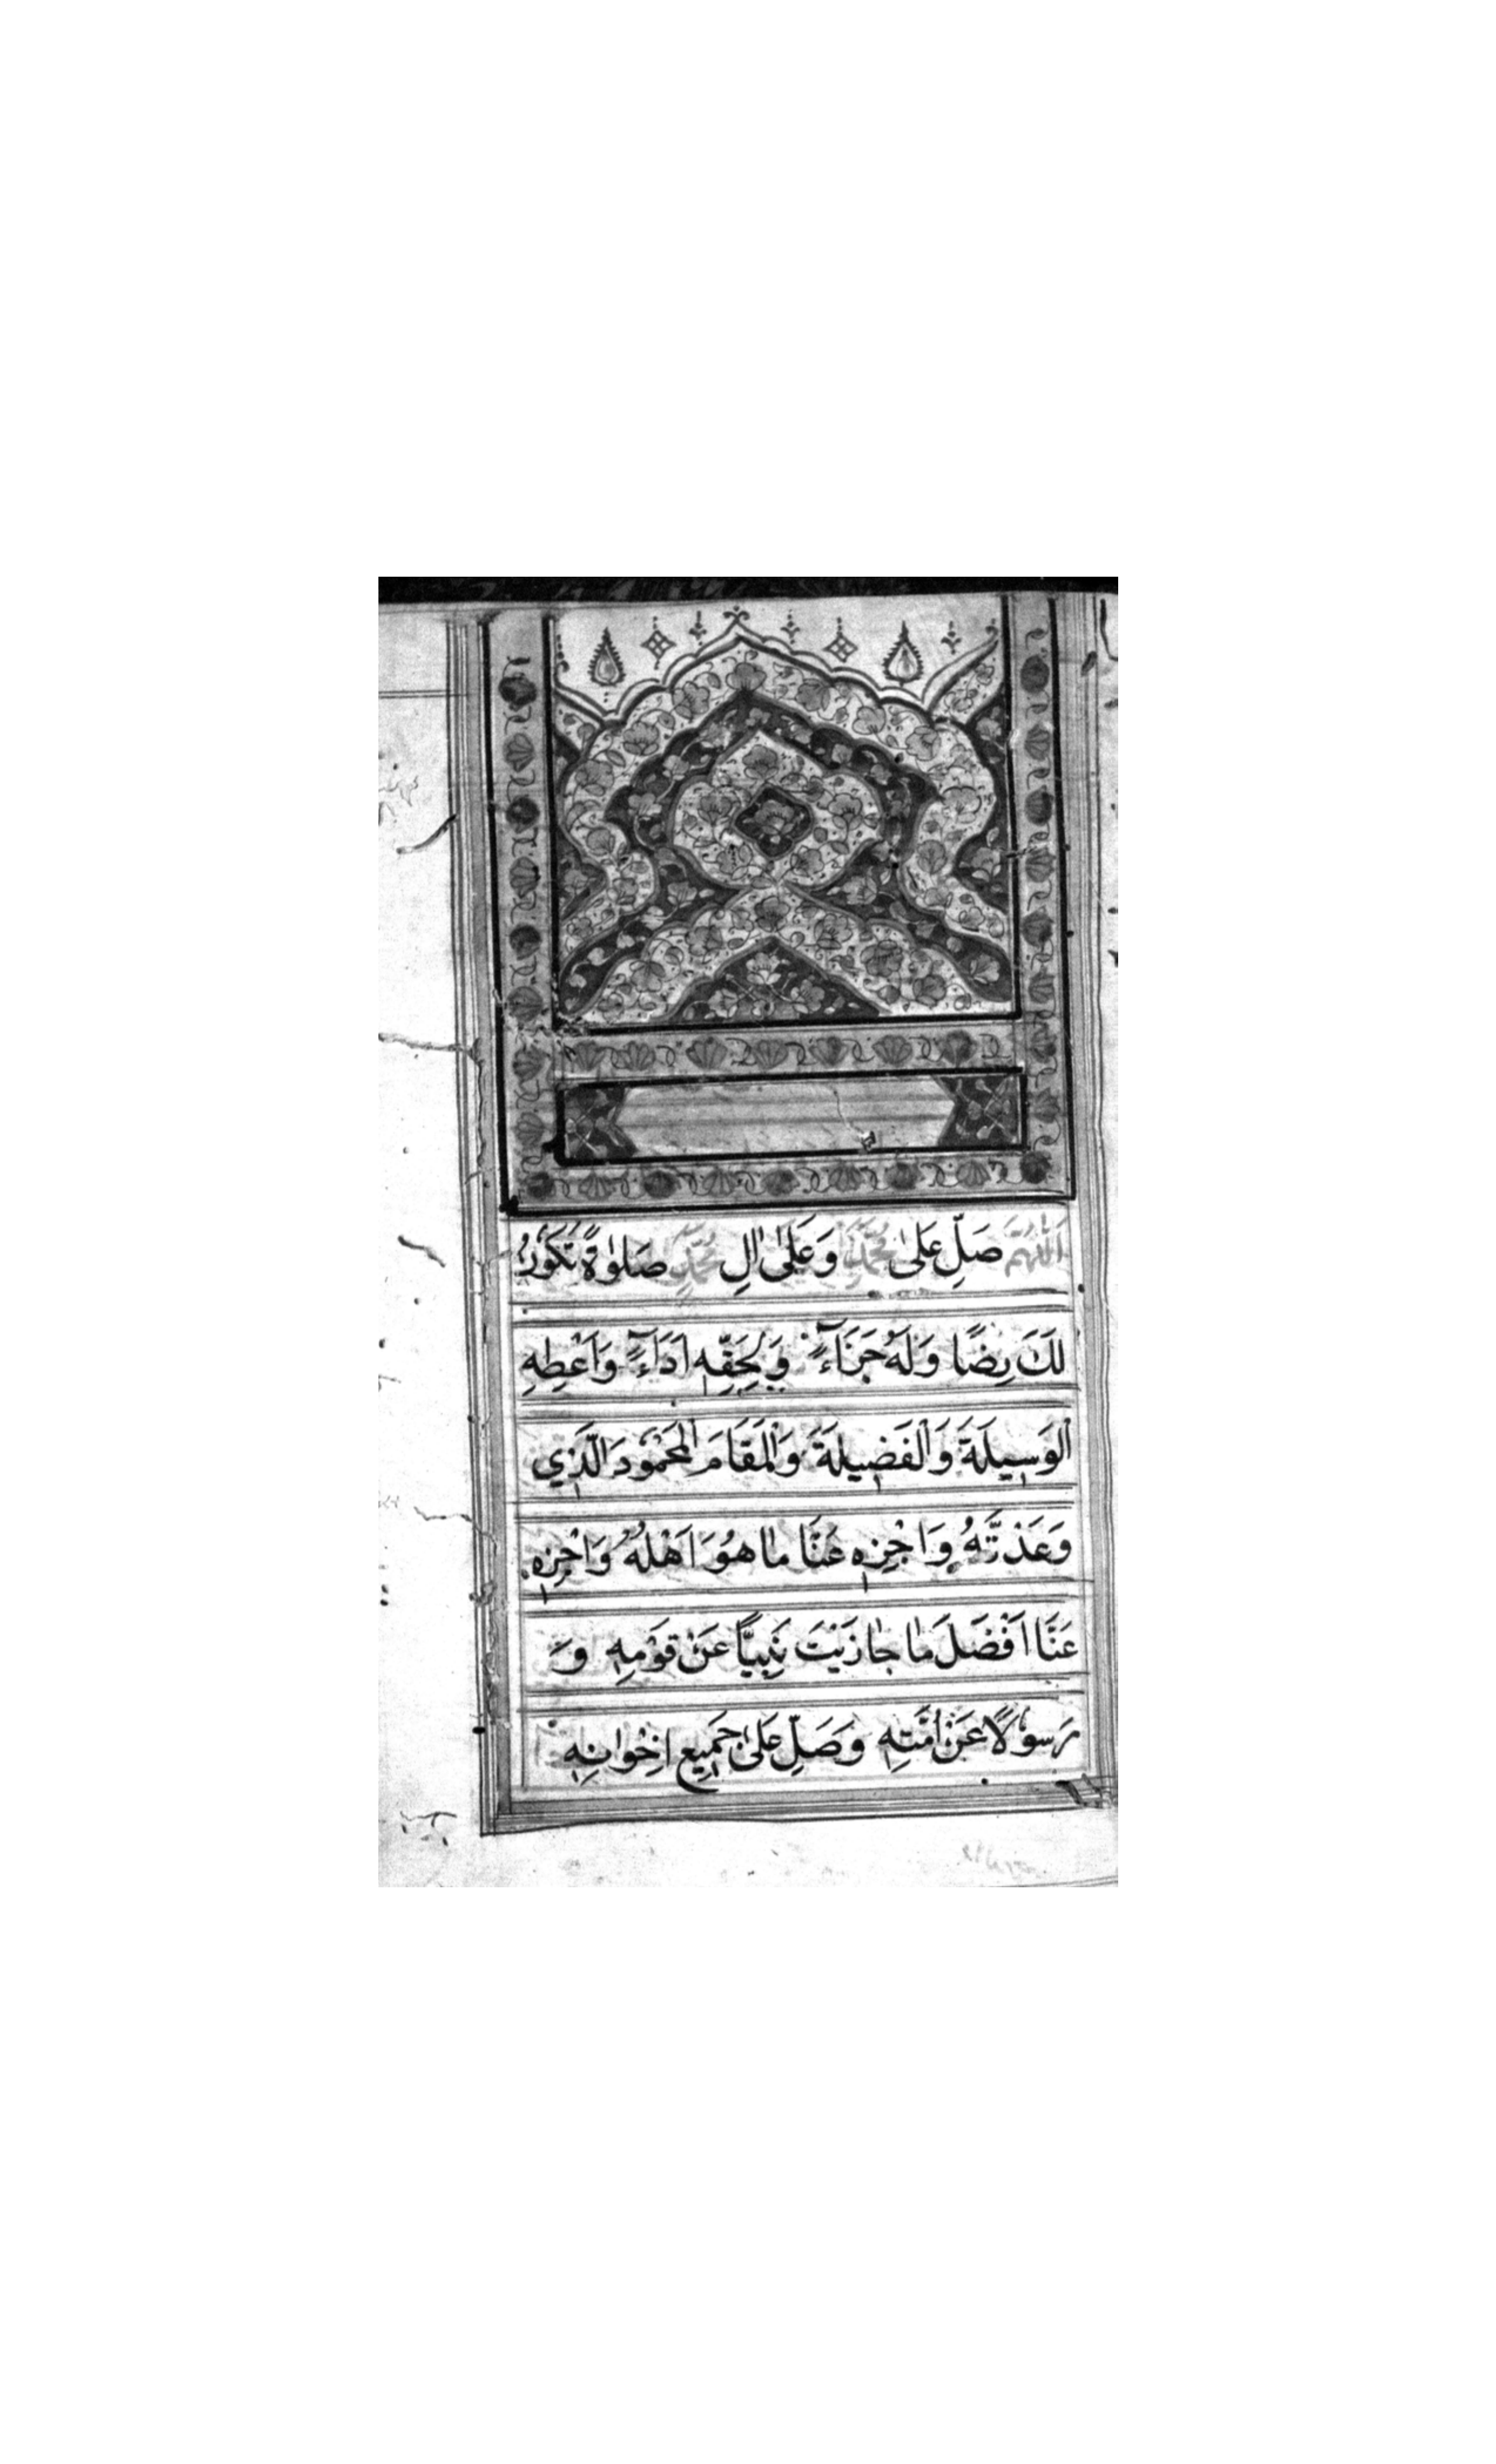 اَللّٰهُمَّ صَلِّ عَلىٰ مُحَمَّدٍ وَعَلىٰ اٰلِ مُحَمَّدٍ صَلوٰةً تَكُوْنُ
لَكَ رِضًا وَلَهُ جَزَاءً وَلِحَقِّهِ اَدَاءً وَاَعْطِهِ
الْوَسِيلَةَ وَالْفَضِيلَةَ وَالْمَقَامَ الْمَحْمُودَ الَّذِي
وَعَدْتَّهُ وَاجْزِهِ عَنَّا مَا هُوَ اَهْلُهُ وَاجْزِهِ
عَنَّا اَفْضَلَ مَا جَازَيْتَ نَبِيًّا عَنْ قَوْمِهِ وَ
رَسُولًا عَنْ اُمَّتِهِ وَصَلِّ عَلىٰ جَمِيعِ اِخْوَانِهِ